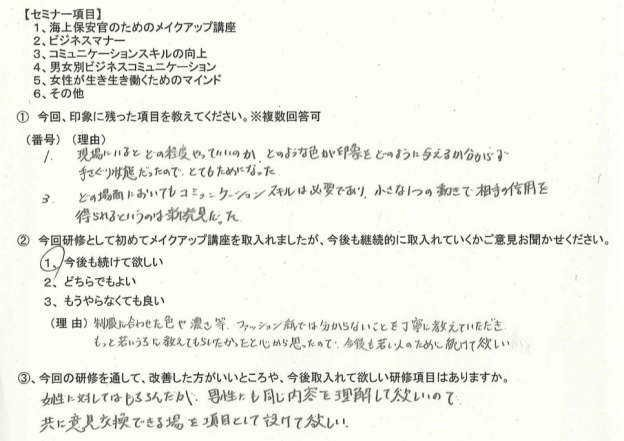 【セミナー項目】
1、海上保安官のためのメイクアップ講座
2、ビジネスマナー
3、コミュニケーションスキルの向上
4、男女別ビジネスコミュニケーション
5、女性が生き生き働くためのマインド
6、その他
① 今回、印象に残った項目を教えてください。※複数回答可
（番号）（理由）
1. 現場にいるとどの程度やっていいのか、どのような色が印象をどのように与えるか分からず
手さぐり状態だったので、とてもためになった
3. どの場面においてもコミュニケーションスキルは必要であり、小さな1つの動きで相手の信用を
得られるというのは新発見だった
② 今回研修として初めてメイクアップ講座を取入れましたが、今後も継続的に取入れていくかご意見お聞かせください。
1、今後も続けて欲しい
2、どちらでもよい
3、もうやらなくても良い
（理 由）制服に合わせた色や濃さ等、ファッション紙では分からないことを丁寧に教えていただき
もっと若いうちに教えてもらいたかったと心から思ったので、今後も若い人のために続けて欲しい
③、今回の研修を通して、改善した方がいいところや、今後取入れて欲しい研修項目はありますか。
女性に対してはもちろんだが、男性にも同じ内容を理解して欲しいので
共に意見交換できる場を項目として設けて欲しい。